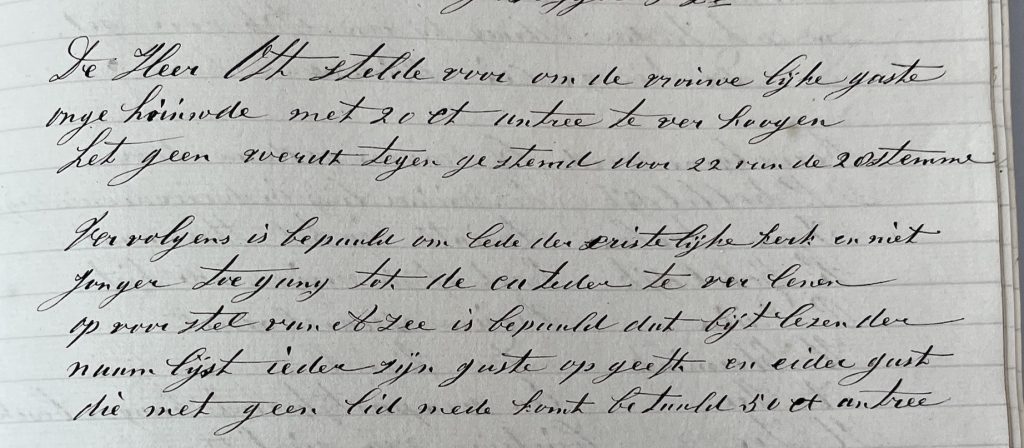 De Heer Oth stelde voor om de vrouwe lijke gaste
onge hüuwde met 20 ct antree te ver hoogen
Het geen werdt tegen ge stemd door 22 van de 28 stemme
Ver volgens is bepaald om lede der cristelijke kerk en niet
Jonger toe gang tot de cateder te ver lenen
op voor stel van A Zee is bepaald dat bijt lezen der
naam lijst ieder zijn gaste op geeft en eider gast
die met geen lid mede komt be taald 50 ct antree